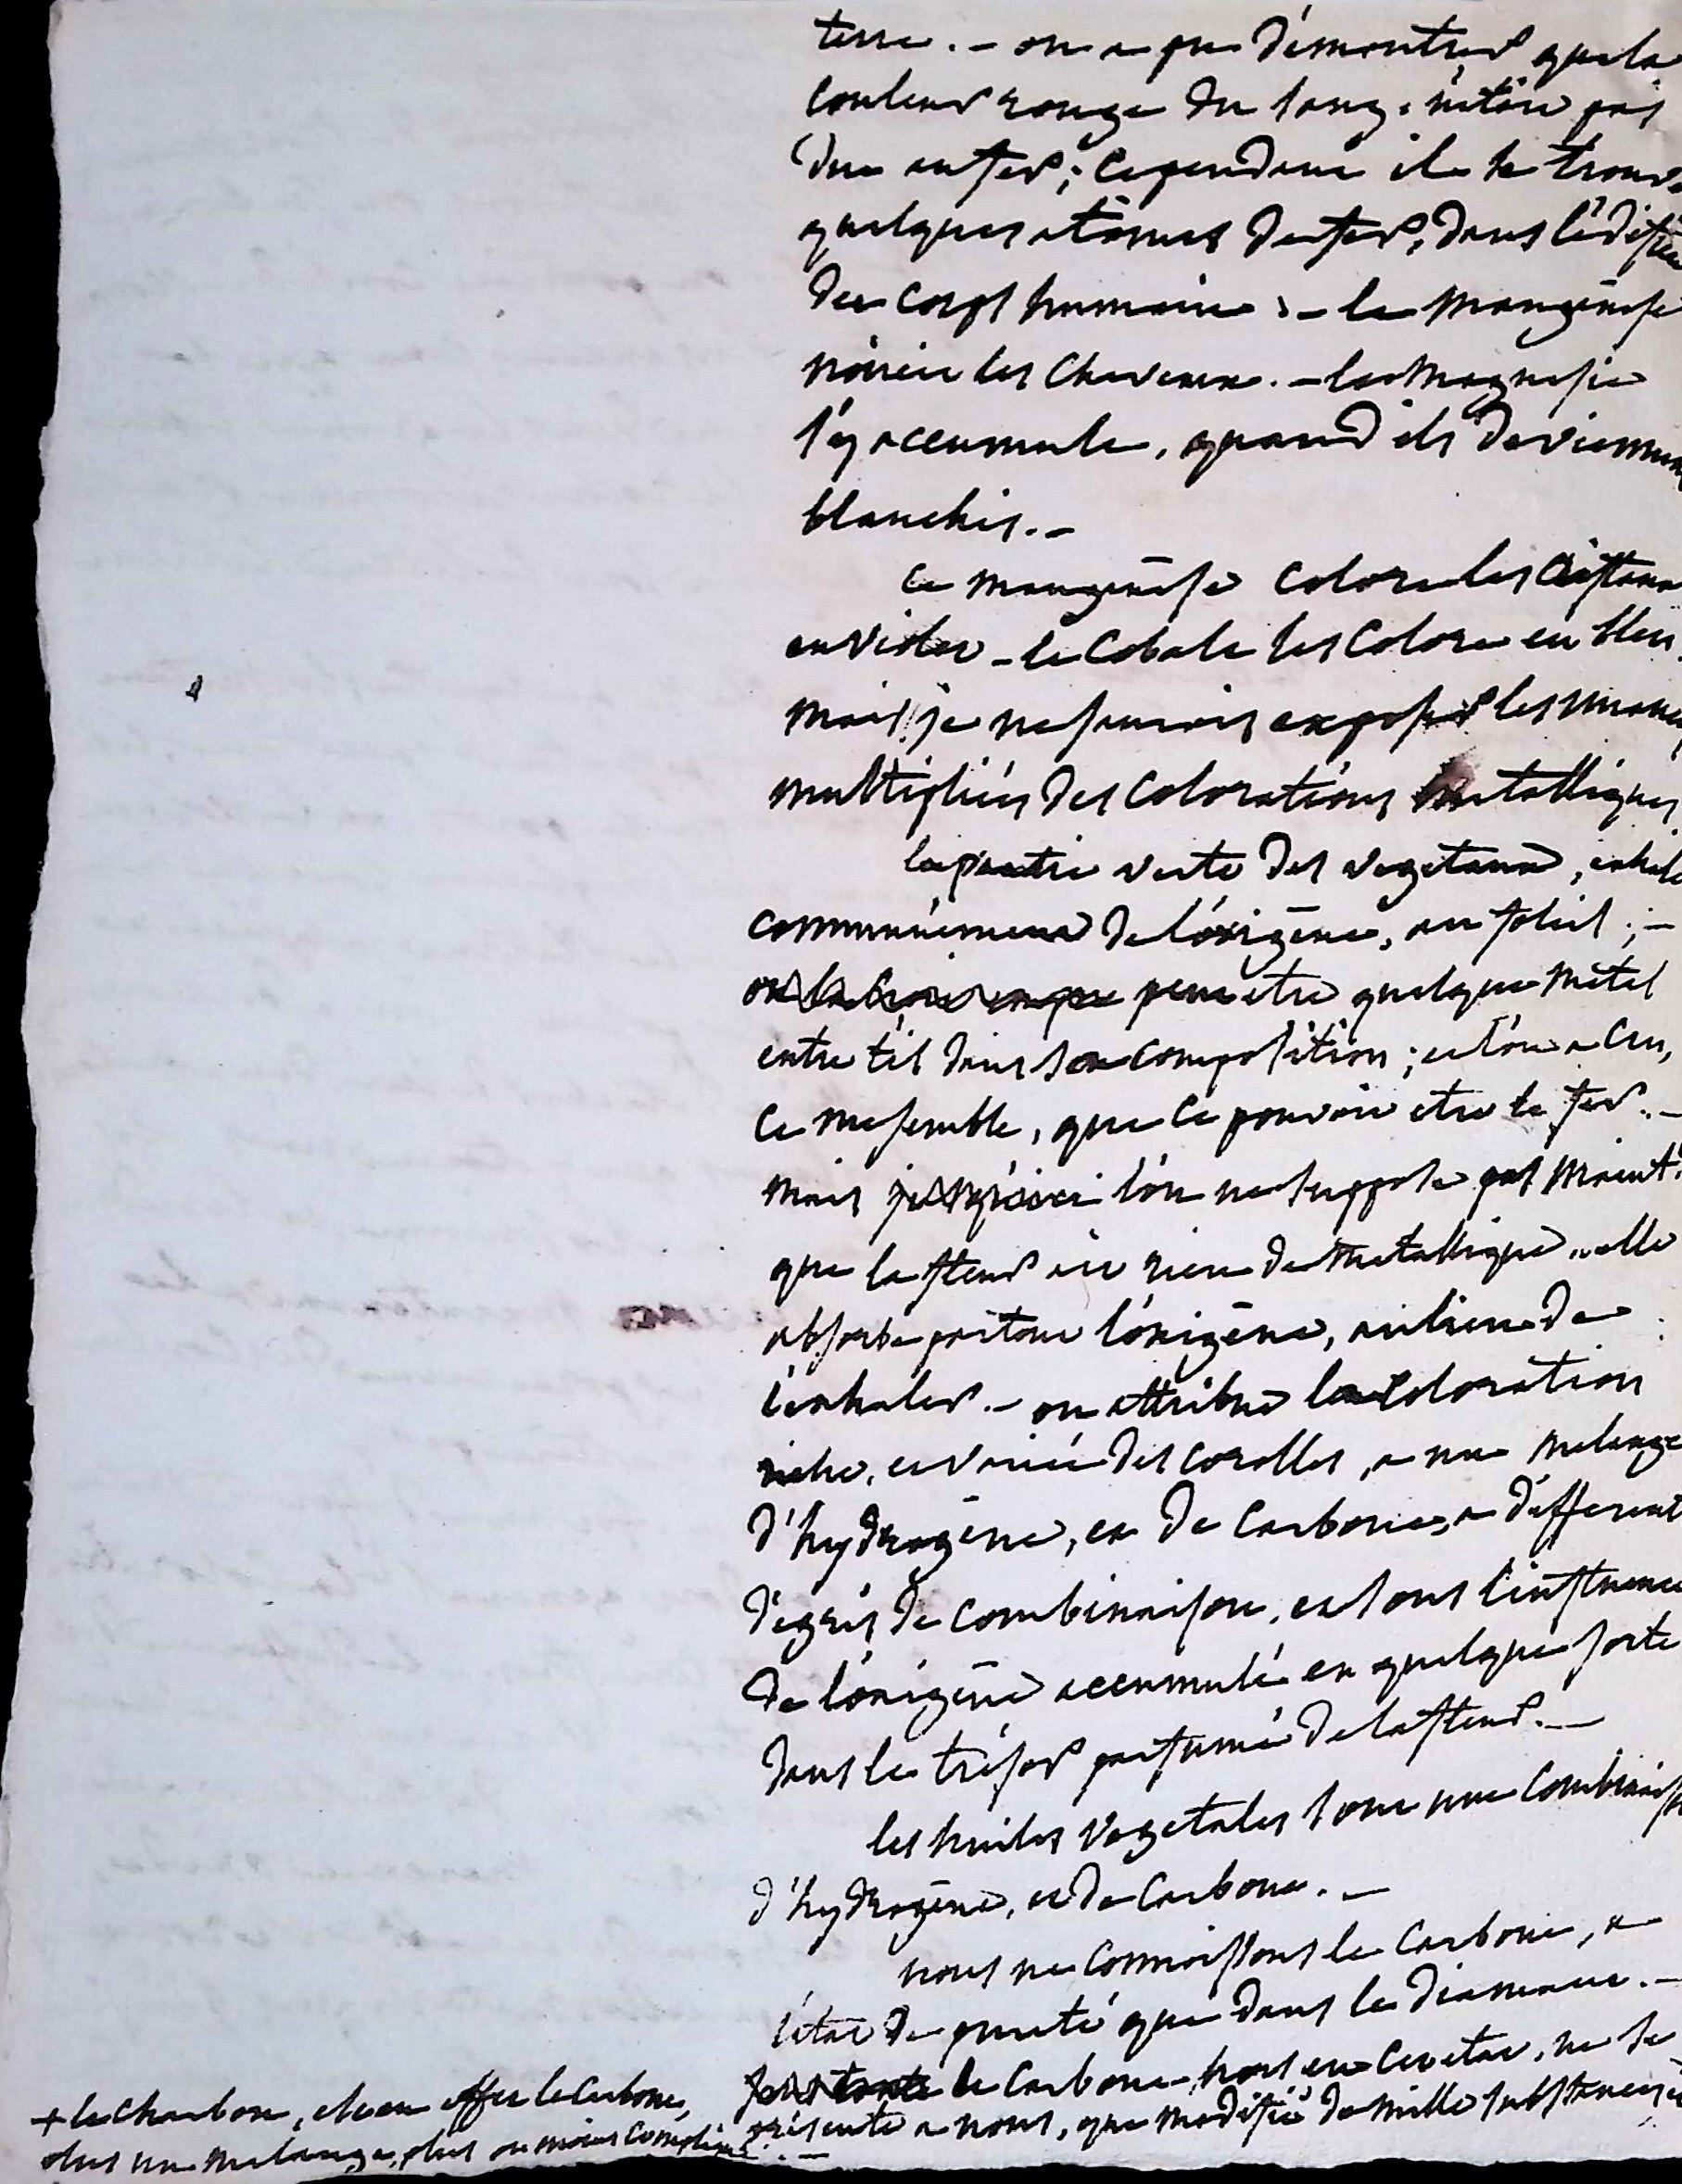 terre. – on a pu démontrer que la
couleur rouge du sang, n'étoit pas
due au fer; cependant il se trouve
quelques atômes de fer, dans l'édifice
du corps humain. – le manganèse
noircit les cheveux. – la magnesie
s'y accumule, quand ils deviennent
blanchis. –
ce manganèse colore les cristaux
en violet – le cobalt les colore en bleu.
mais je ne saurois exposer les nuances
multipliées des colorations métalliques
la partie verte des vegetaux, exhale
communément de l'oxigène, au soleil; –
peut etre quelque métal
entre t'il dans sa composition; et l'on a cru,
ce me semble, que ce pouvoit etre le fer. –
mais l'on ne suppose pas maint.
que la fleur ait rien de metallique. elle
absorbe partout l'oxigène, au lieu de
l'exhaler. – on attribue la coloration
riche, et variée des corolles, a un melange
d'hydrogène, et de carbone, a different
dégrés de combinaison, et sous l'influence
de l'oxigène accumulé en quelque sorte
dans le trésor parfumé de la fleur. –
les huiles vegetales sont une combinaison
d'hydrogène, et de carbone. –
nous ne connoissons le carbone, a
l'état de pureté que dans le diamant. –
le carbone hors en cet etat, ne se
présente a nous, que modifié de mille substances
+ le charbon, est en effet le carbone,
plus un melange, plus ou moins compliqué. –